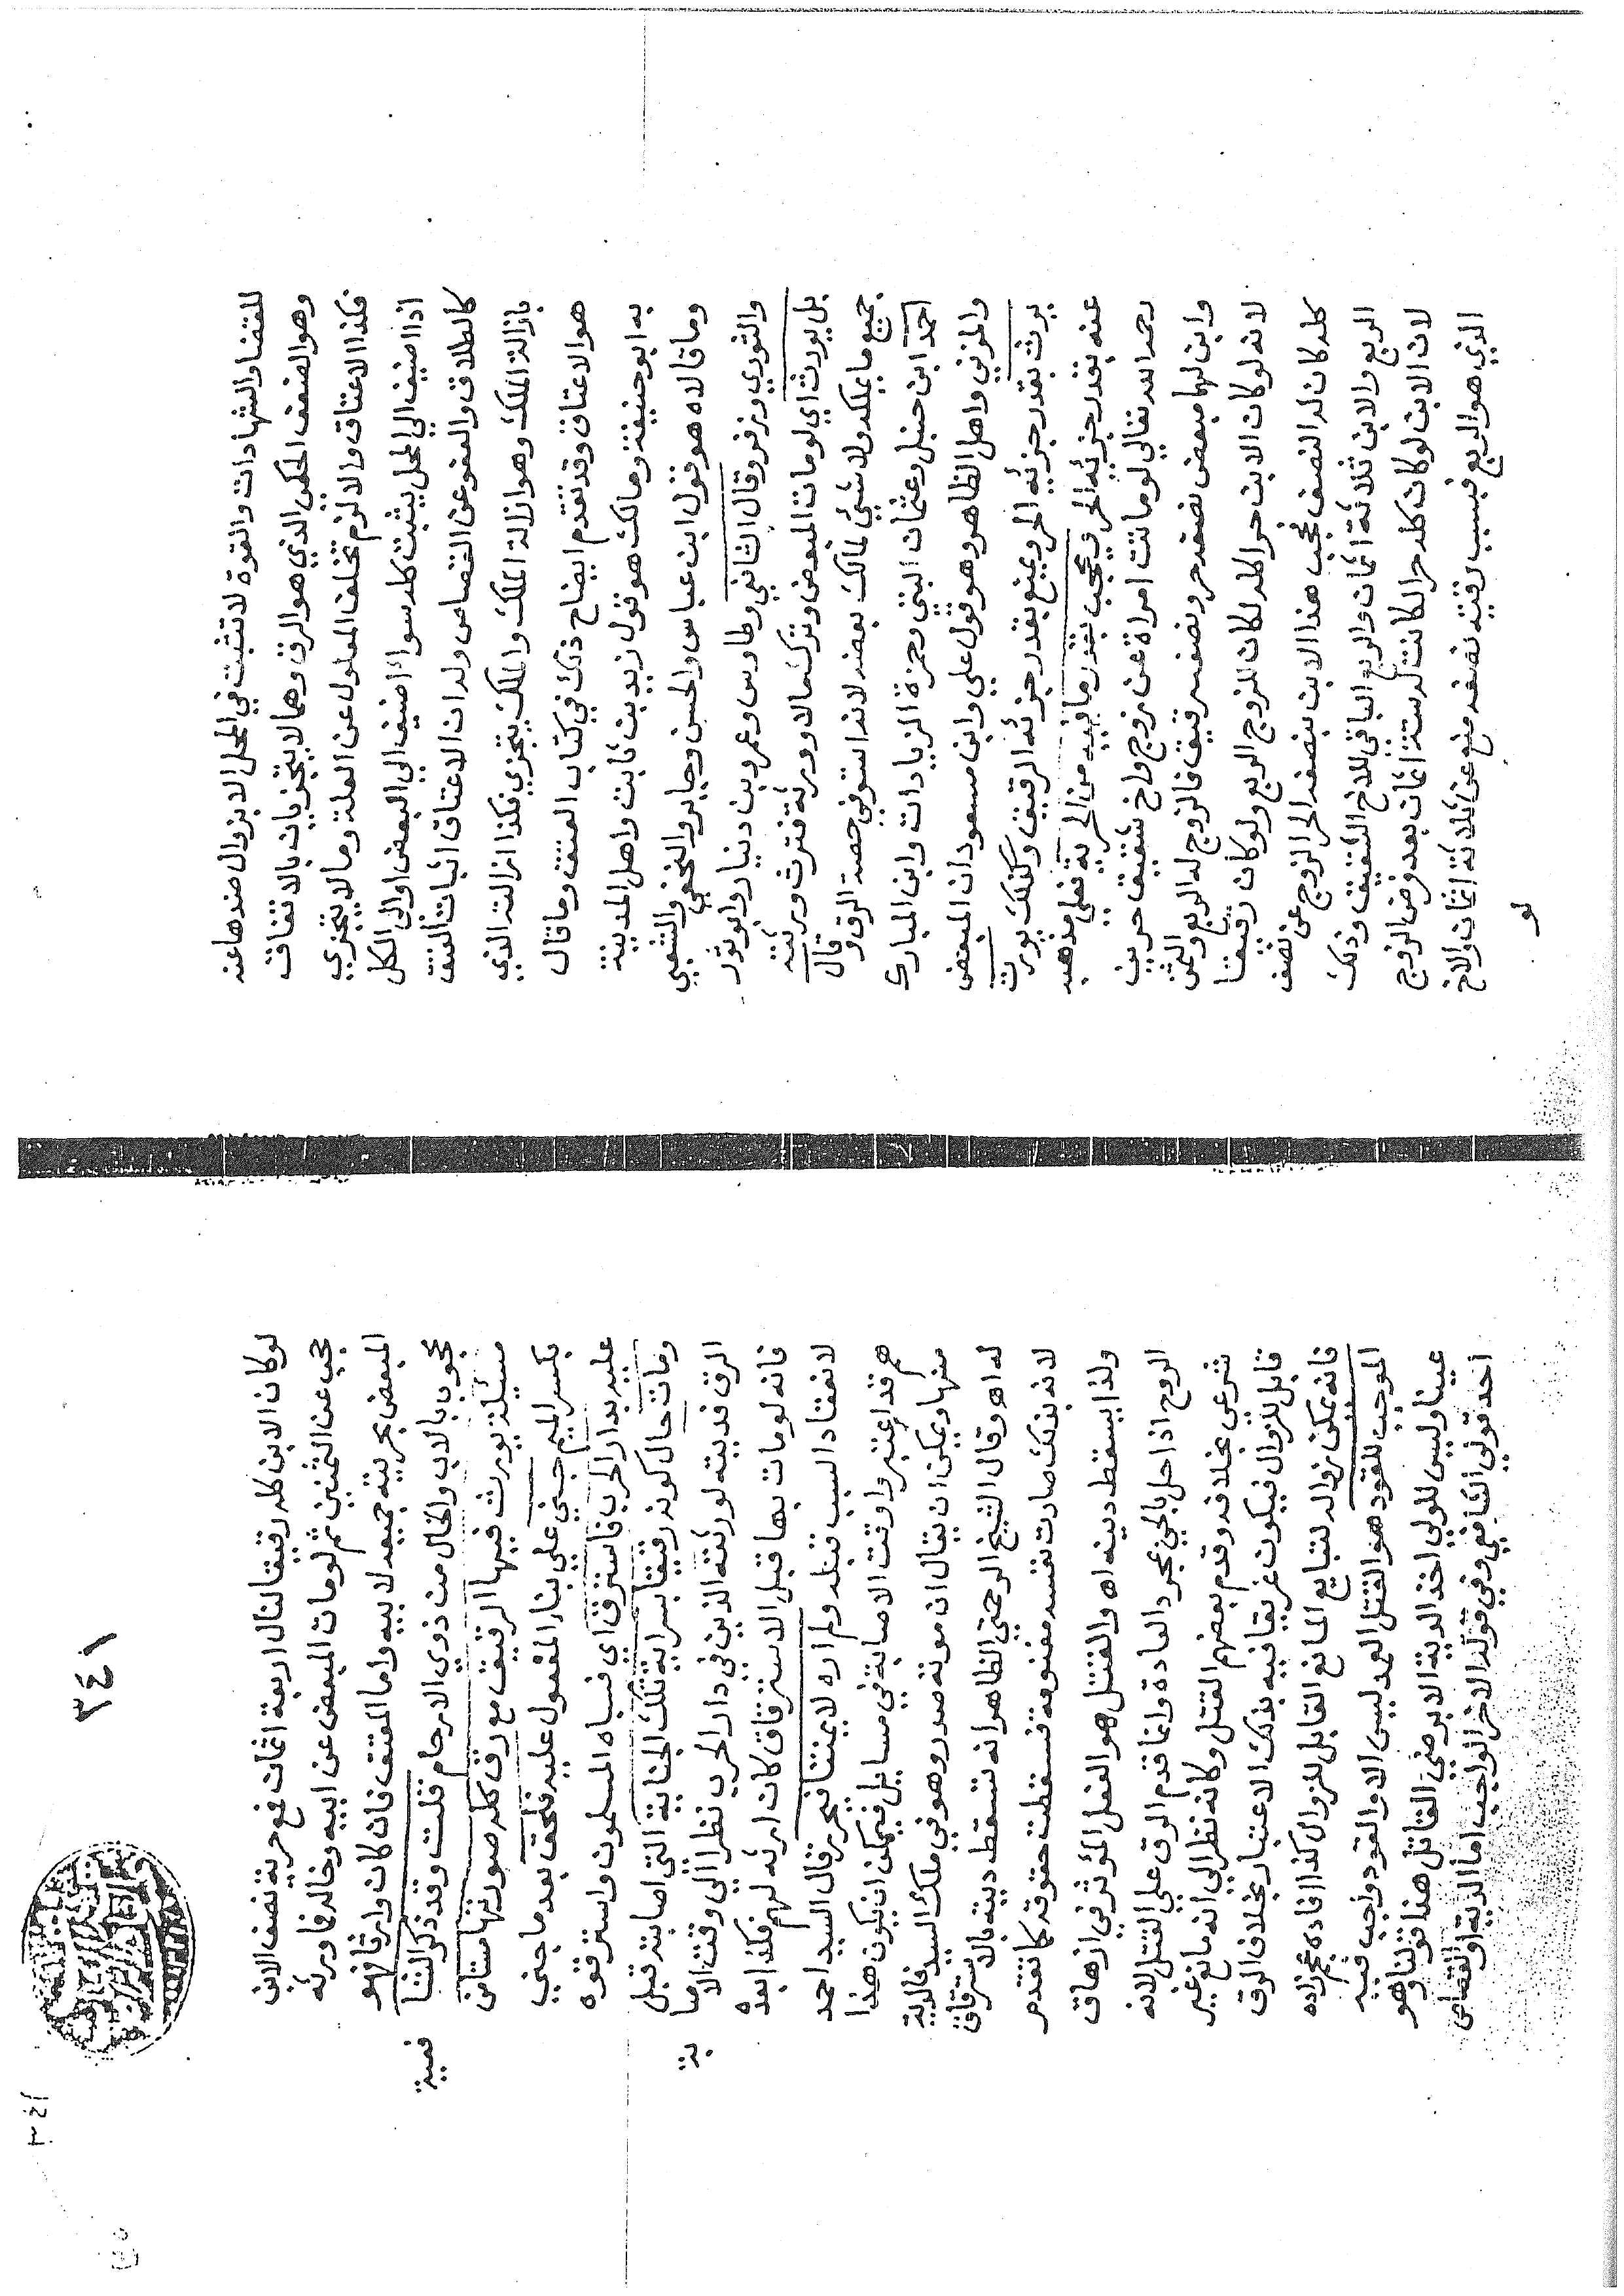 للقضا والشهادات والقوة لا تثبت في المحل الا بزوال ضدها عنه
وهو الضعف الحكمي الذي هو الرق وهما لا يتجزيان بالاتفاق
فكذا الاعتاق والا لزم تخلف المعلول عن العلة وما لا يتجزي
اذا اضيف الي المحل يثبت كله سواء اضيف الي البعض او الي الكل
كالطلاق والعفو عن القصاص وله ان الاعتاق اثبات العتق
بازالة الملك وهو ازالة الملك والملك يتجزي فكذا ازالته الذي
هو الاعتاق وقد تقدم ايضاح ذلك في كتاب العتق وما قال
به ابو حنيفة ومالك هو قول زيد بن ثابت واهل المدينة
وما قالاه هو قول ابن عباس والحسن وجابر والنخعي والشعبي
والثوري وزفر وقال الثاني وطاوس وعمرو بن دينار وابو ثور
بل يورث اي لو مات المبعض وترك مالا وورثة فترث ورثته
جميع ما يملكه ولا شئ لمالك بعضه لانه استوفي حصة الرق وقال
احمد ابن حنبل وعثمان البتي وحمزة الزيادات وابن المبارك
والمزني واهل الظاهر وهو قول علي وابن مسعود ان المبعض
يرث بقدر جزئيه الحر ويمنع بقدر جزئه الرقيق وكذلك يورث
عنه بقدر جزئيه الحر ويحجب بقدر ما فيه من الحرية فعلي مذهبه
رحمه الله تعالي لو ماتت امراة عن زوج واخ شقيق حرين
وابن لهما مبعض نصفه حر ونصفه رقيق فالزوج له الربع والثمن
لانه لو كان الابن حر الكله لكان للزوج الربع ولو كان رقيقا
كله كان له النصف فحجب هذا الابن بنصفه الحر الزوج عن نصف
الربع والابن ثلاثة اثمان والربع الباقي للاخ الشقيق وذلك
لان الابن لو كان كله حر الكانت له ستة اثمان بعد فرض الزوج
الذي هو الربع فبسبب رقية نصفه منع عن ثلاثة اثمان والاخ
لو
٣٤١
لو كان الابن كله رقيقا لنال اربعة اثمان فمع حرية نصف الابن
حجب عن الثمنين ثم لو مات المبعض عن ابيه وخاله فاورثه
المبعض بحريته جميعه لابيه واما المعتق فان كان وارثا فهو
محجوب بالاب والخال من ذوي الارحام قلت وقد ذكر الشا
فعية
مسئلة يورث فيها الرقيق مع رق كله صورتها مستامن
بكسر الميم جني علي بناء المفعول عليه فلحق بعد ما جني
عليه بدار الحرب فاسترق اي فسباه المسلمون واسترقوه
ومات حال كونه رقيقا بسراية تلك الجناية التي اصابته قبل
الرق فديته لورثته الذين في دار الحرب نظرا الي وقت الاصا
بة
فانه لو مات بها قبل الاسترقاق كان ارثه لهم فكذا بعده
لانعقاد السبب قبله ولم اره لايمتنا فيحرر قال السيد احمد
هم قد اعتبروا وقت الاصابة في مسايل فيمكن ان يكون هذا
منها ويمكن ان يقال ان موته صدر وهو في ملك السيد فالدية
له اه وقال الشيخ الرحمتي الظاهر انه تسقط ديته بالاسترقاق
لانه بذلك صارت نفسه مغنومة فسقطت حقوقه كما تقدم
ولذا يسقط دينه اه والقتل هو الفعل المؤثر في ازهاق
الروح اذا حل بالحي بمجرد العادة وانما قدم الرق علي القتل لانه
شرعي بخلافه وقدم بعضهم القتل وكانه نظر الي انه مانع غير
قابل للزوال فيكون عريقا فيه بذلك الاعتبار بخلاف الرق
فانه يمكن زواله لتتابع المانع القابل للزوال كذا افاده عجم زاده
الموجب للقود هو القتل العمد ليس الا والقود واجب فيه
عينا وليس للولي اخذ الدية الا برضي القاتل هذا قولنا وهو
احد قولي الشافعي وفي قوله الاخر الواجب اما الدية او القصاص